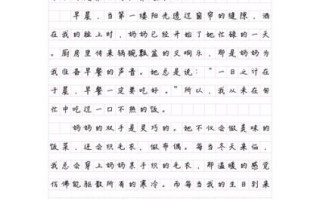 早晨，当第一缕阳光透过窗帘的缝隙，洒
在我的脸上时，妈妈已经开始了她忙碌的一天
。厨房里传来锅碗瓢盆的交响乐，那是妈妈为
我准备早餐的声音。她总是说：“一日之计在
于晨，早餐一定要吃好。”所以，我从未在匆
忙中吃过一口不热的饭。
妈妈的双手是灵巧的。她不仅会做美味的
饭菜，还会织毛衣，做布偶。每当冬天来临，
我总会穿上妈妈亲手织的毛衣，那温暖的感觉
仿佛能驱散所有的寒冷。而每当我的生日到来